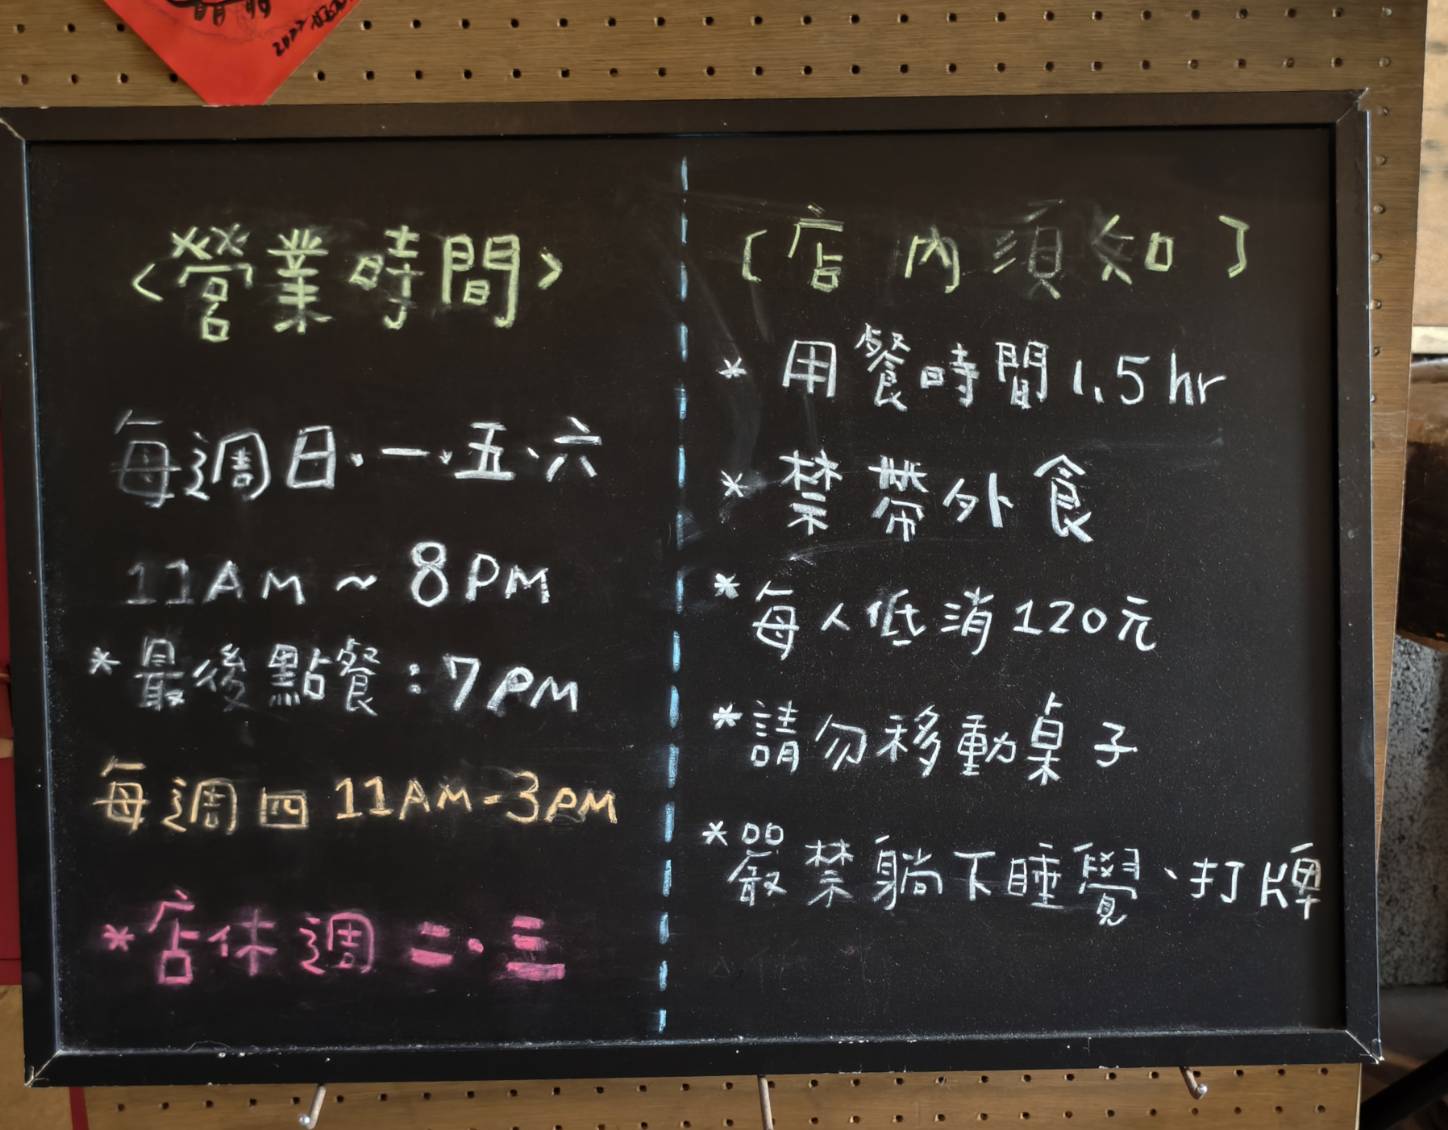 <營業時間>
每週日、一、五、六
11AM ~ 8PM
*最後點餐:7PM
每週四 11AM-3PM
*店休週二、三
[店內須知]
* 用餐時間1.5hr
* 禁帶外食
*每人低消120元
*請勿移動桌子
*嚴禁躺下睡覺、打牌